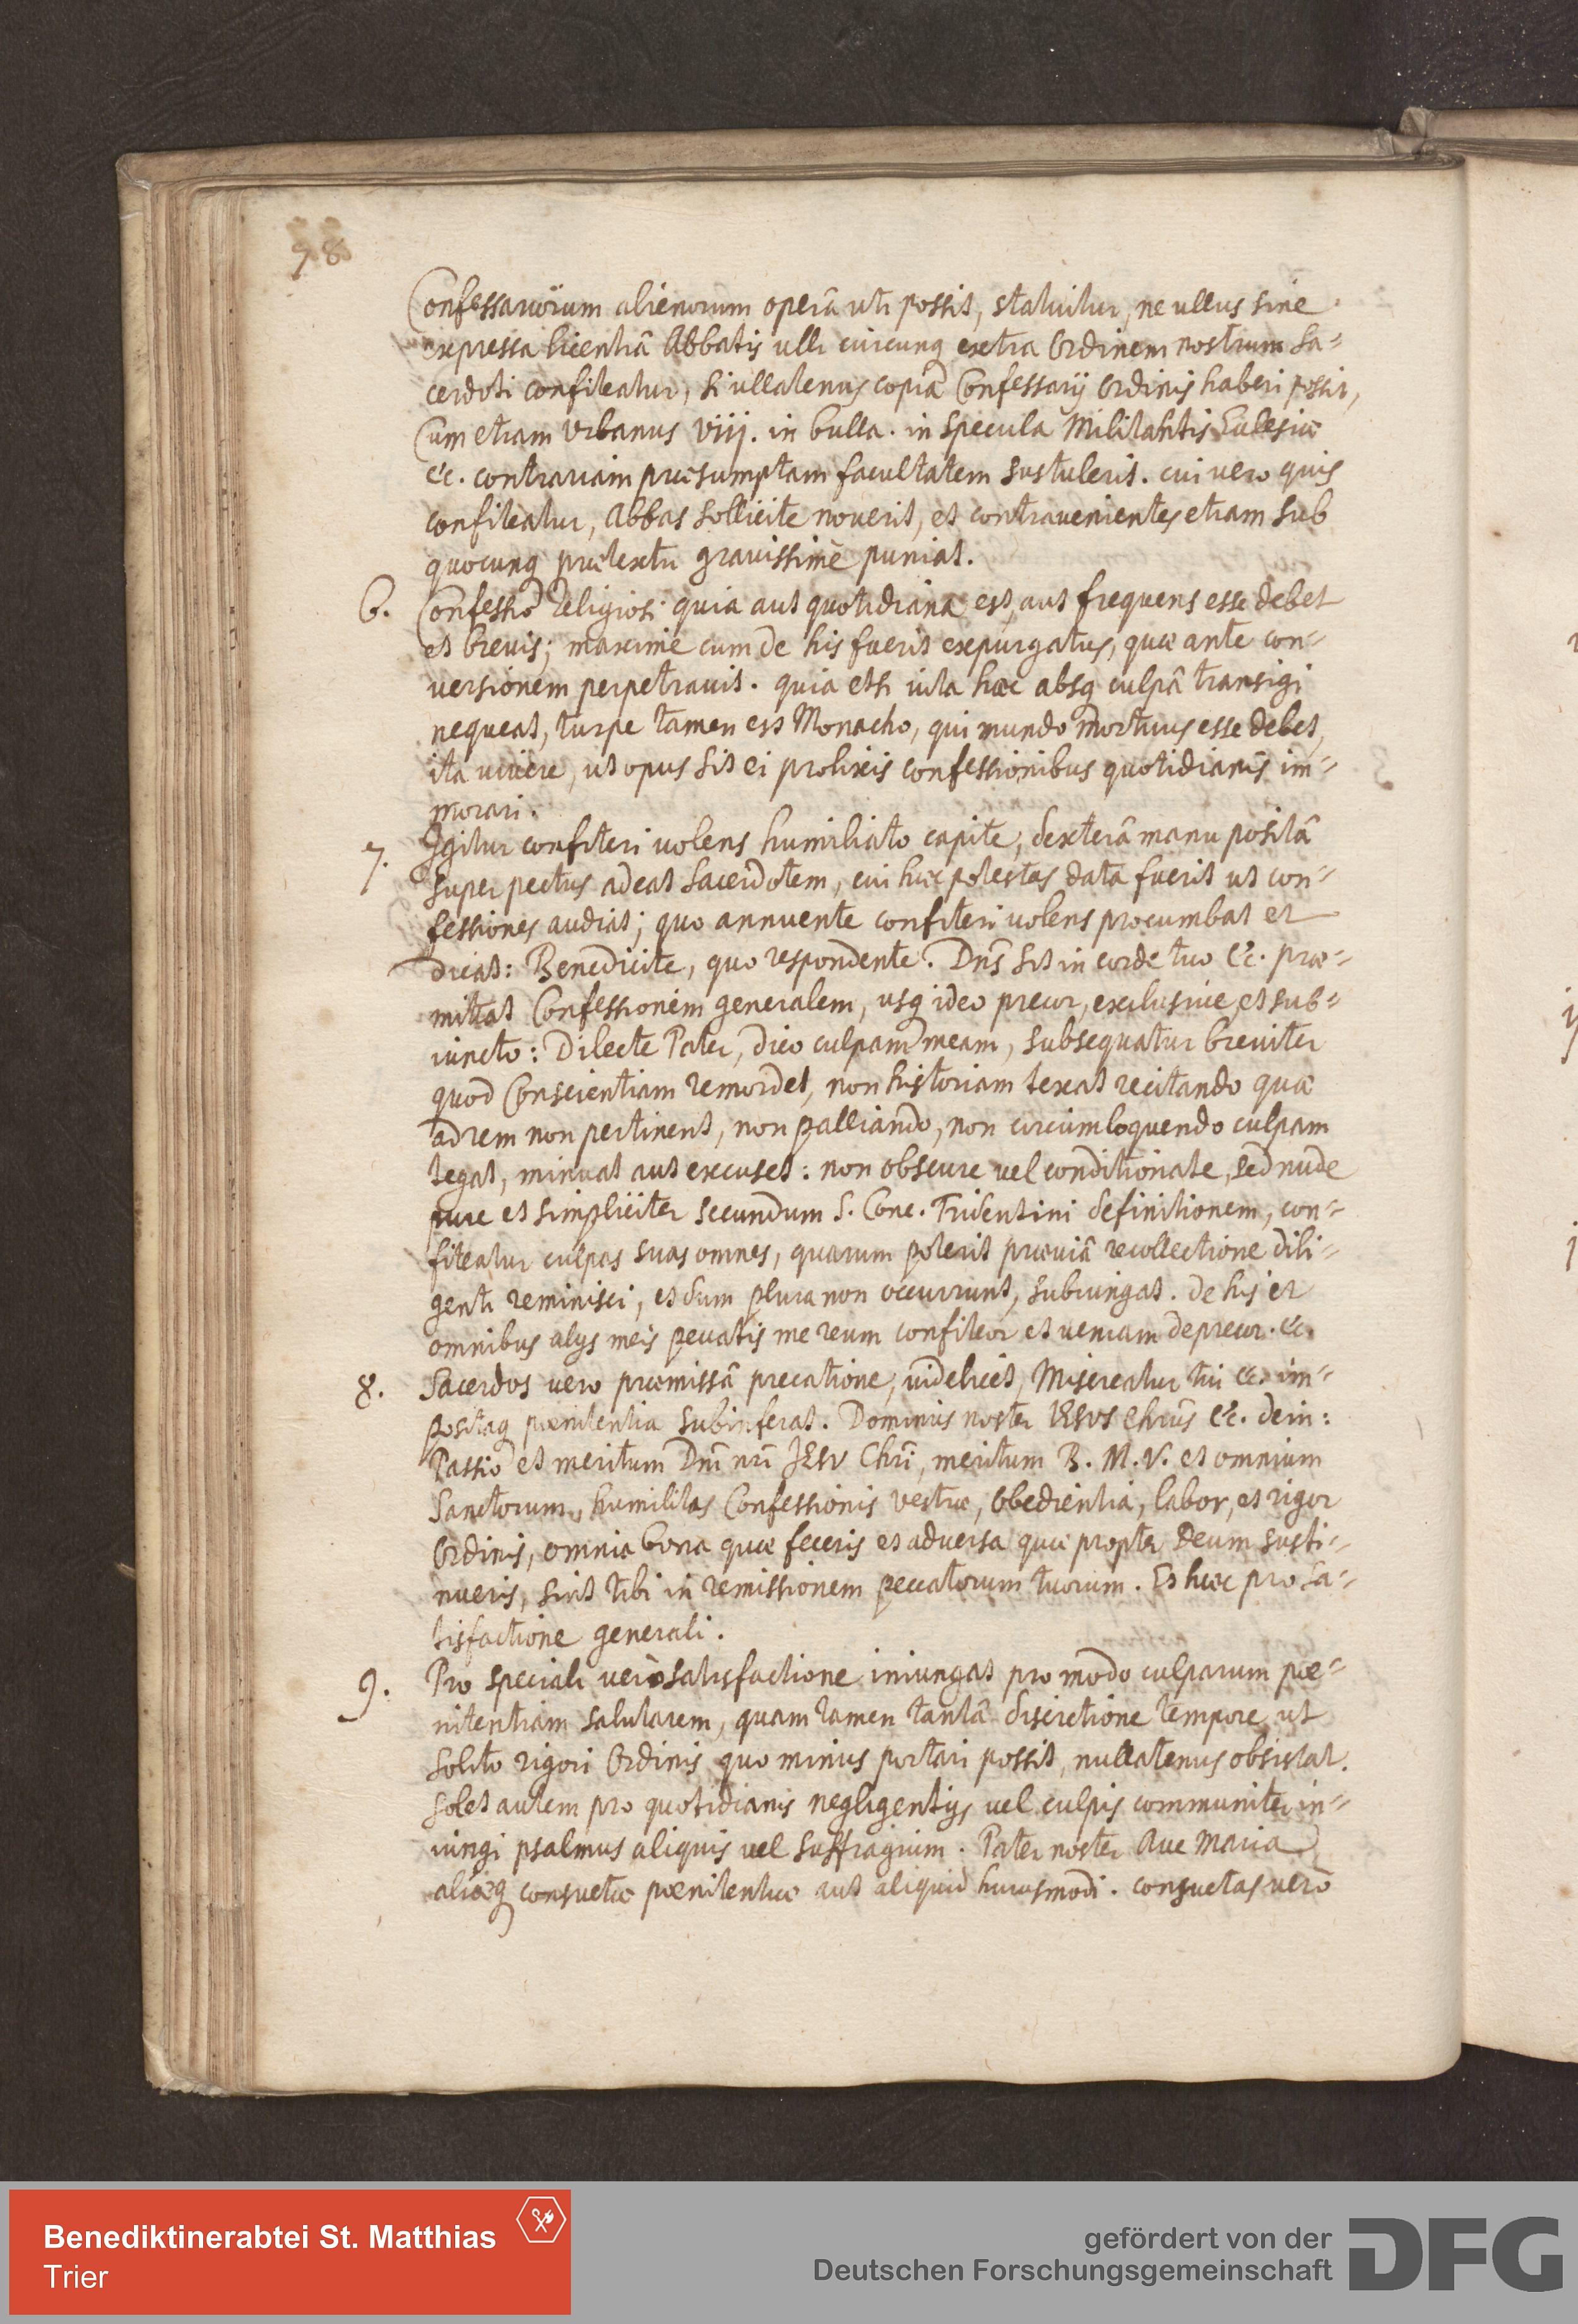 98
Confessariorum alienorum operâ uti possit, statuitur, ne ullus sine
expressa licentiâ Abbatis ulli cuicunq extra Ordinem nostrum Sa=
cerdoti confiteatur, si ullatenus copiâ Confessarij Ordinis haberi possit,
Cum etiam Urbanus VIIJ. in bulla. in specula Militantis Ecclesiæ
&c. contrariam præsumptam facultatem sustulerit. cui vero quis
confiteatur, Abbas sollicite noverit, et contravenientes etiam sub
quocunq prætextu gravissimè puniat.
6. Confessio Religiosi quia aut quotidiana est, aut frequens esse debet
et brevis; maxime cum de his fuerit expurgatus, quæ ante con=
versionem perpetravit. quia etsi vita hæc absq culpâ transigi
nequeat, turpe tamen est Monacho, qui mundo mortuus esse debet,
ita vivere, ut opus sit ei prolixis confessionibus quotidianis im=
morari.
7. Igitur confiteri volens humiliato capite, dexterâ manu positâ
super pectus adeat Sacerdotem, cui hæc potestas data fuerit ut con=
fessiones audiat; quo annuente confiteri volens procumbat et
dicat: Benedicite, quo respondente. Dns̄ sit in corde tuo &c. præ=
mittat Confessionem generalem, usq ideo precor, exclusive, et sub=
iuncto: Dilecte Pater, dico culpam meam, subsequatur breviter
quod Conscientiam remordet, non historiam texat recitando quæ
ad rem non pertinent, non palliando, non circumloquendo culpam
tegat, minuat aut excuset: non obscure vel conditionate, sed nude
pure et simpliciter secundum S. Conc. Tridentini definitionem, con=
fiteatur culpas suas omnes, quarum poterit præviâ recollectione dili=
genti reminisci, et dum plura non occurrunt, subiungat. De his et
omnibus alijs meis peccatis me reum confiteor et veniam deprecor. &c.
8. Sacerdos vero præmissâ precatione, videlicet, Misereatur tui &c. im=
positaq pœnitentia subinferat. Dominus noster IESVS Chrūs &c. dein:
Passio et meritum Dnī nrī JESV Chrī, meritum B. M. V. et omnium
Sanctorum, humilitas Confessionis vestræ, obedientia, labor, et rigor
Ordinis, omnia bona quæ feceris et adversa quæ propter Deum susti=
nueris, sint tibi in remissionem peccatorum tuorum. Et hæc pro sa=
tisfactione generali.
9. Pro speciali vero satisfactione iniungat pro modo culparum pœ=
nitentiam salutarem, quam tamen tantâ discretione tempore, ut
solito rigori Ordinis quo minus portari possit, nullatenus obsistat.
solet autem pro quotidianis negligentijs vel culpis communiter in=
iungi psalmus aliquis vel suffragium. Pater noster Ave Maria
aliæq consuetæ pœnitentiæ aut aliquid huiusmodi. consuetas verò
Benediktinerabtei St. Matthias
Trier
gefördert von der
Deutschen Forschungsgemeinschaft
DFG